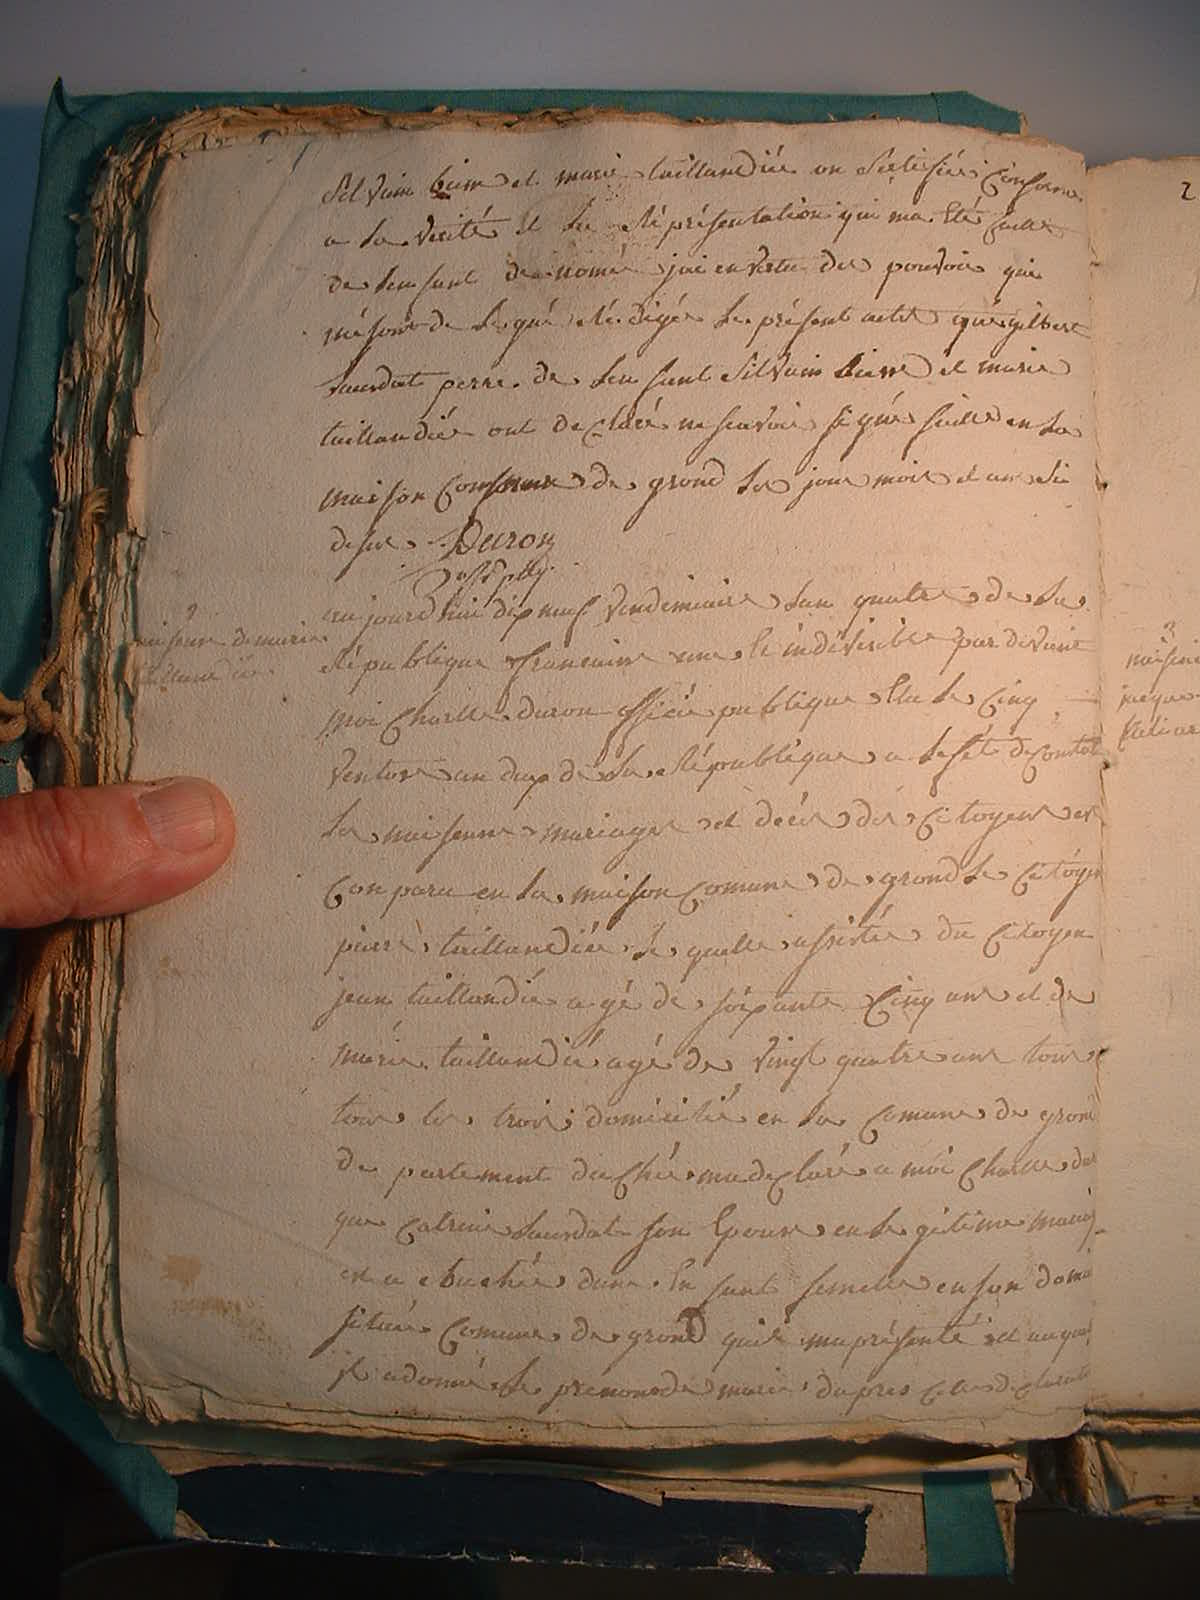 Silvain biere et marie taillandiée on Sertifiée Conforme
a la verité et la Réprésentation qui ma Eté faitte
de Lenfant de nomée jai en vertu des pouvoir qui
mésont de légué Rédigée le présent acte que gilbert
Laurdat perre de Lenfant Silvain bierre et marie
taillandiée ont déclaré ne scavoir signé faitte en la
maison Comune de grond les jour mois et an si
desus Duron
off. p.
2
naisance de marie
taillandiée
aujourdhui dix neuf vendemiaire Lan quatre de la
Républigue francaise une Et indévisible par devant
moi Charlle duron officié publigue Elu le Cinq
ventose an deux de la Républégue a lefét de Constaté
les naisance mariages et décés des Citoyens est
Conparu en la maison Comune de grond le Citoyen
pierre taillandiée le quelle assistée du Citoyen
jean taillandié agé de soixante Cinq ans et de
marie taillandié agé de vingt quatre ans tous
tous les trois domicilié en la Comune de grond
de partement du Chér ma déclaré a moi Charlle du
que Catrine Laurdat son Epouse en le gétime mariaj
est a cbuchée dune En fant femelle en son domi
située Comune de grond quil ma présenté et auquel
il a donnée le prenom de marie dapres cette declarati
2
3
naisance
jacque